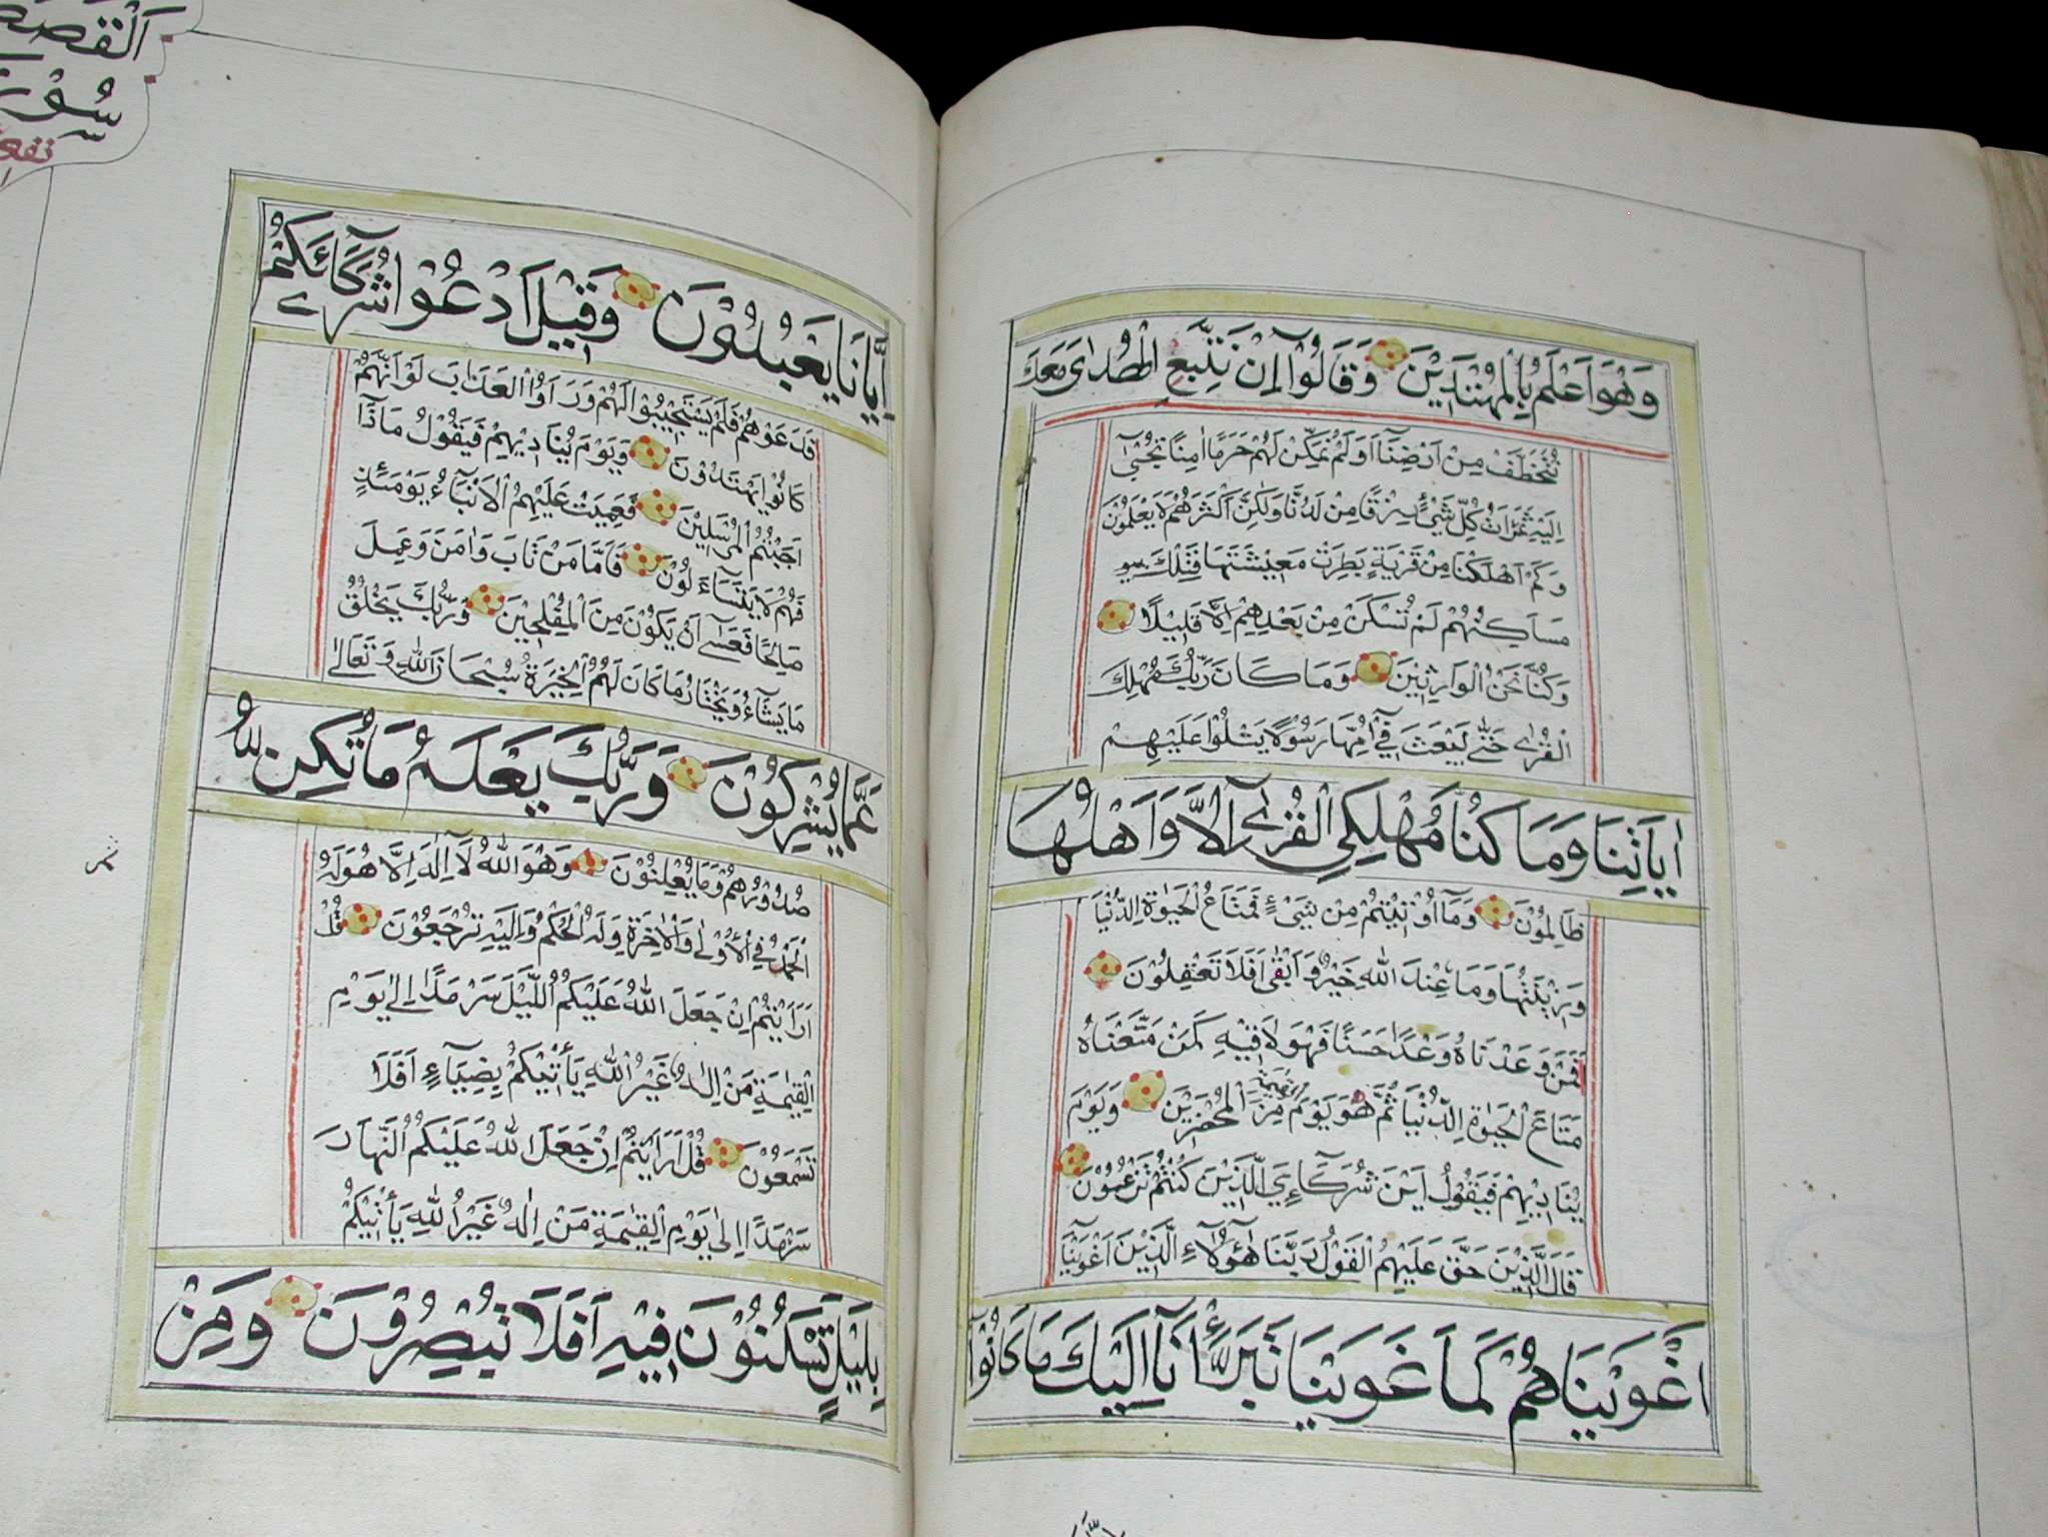 وَهُوَ اَعْلَمُ بِالْمُهْتَدِيْنَ وَقَالُوْٓا اِنْ نَتَّبِعِ الْهُدٰى مَعَكَ
نُتَخَطَّفْ مِنْ اَرْضِنَٓا اَوَلَمْ نُمَكِّنْ لَهُمْ حَرَمًا اٰمِنًا يُجْبٰٓى
اِلَيْهِ ثَمَرَاتُ كُلِّ شَيْئٍ رِزْقًا مِنْ لَدُنَّا وَلٰكِنَّ اَكْثَرَهُمْ لَا يَعْلَمُوْنَ
وَكَمْ اَهْلَكْنَا مِنْ قَرْيَةٍ بَطِرَتْ مَعِيْشَتَهَا فَتِلْكَ
مَسَاكِنُهُمْ لَمْ تُسْكَنْ مِنْ بَعْدِهِمْ اِلَّا قَلِيْلًا
وَكُنَّا نَحْنُ الْوَارِثِيْنَ وَمَا كَانَ رَبُّكَ مُهْلِكَ
الْقُرٰى حَتّٰى يَبْعَثَ فِيْٓ اُمِّهَا رَسُوْلًا يَتْلُوْا عَلَيْهِمْ
اٰيَاتِنَا وَمَا كُنَّا مُهْلِكِي الْقُرٰٓى اِلَّا وَاَهْلُهَا
ظَالِمُوْنَ وَمَٓا اُوْتِيْتُمْ مِنْ شَيْءٍ فَمَتَاعُ الْحَيٰوةِ الدُّنْيَا
وَزِيْنَتُهَا وَمَا عِنْدَ اللهِ خَيْرٌ وَاَبْقٰى اَفَلَا تَعْقِلُوْنَ
اَفَمَنْ وَعَدْنَاهُ وَعْدًا حَسَنًا فَهُوَ لَاقِيْهِ كَمَنْ مَتَّعْنَاهُ
مَتَاعَ الْحَيٰوةِ الدُّنْيَا ثُمَّ هُوَ يَوْمَ الْقِيٰمَةِ مِنَ الْمُحْضَرِيْنَ وَيَوْمَ
يُنَادِيْهِمْ فَيَقُوْلُ اَيْنَ شُرَكَٓاءِيَ الَّذِيْنَ كُنْتُمْ تَزْعُمُوْنَ
قَالَ الَّذِيْنَ حَقَّ عَلَيْهِمُ الْقَوْلُ رَبَّنَا هٰٓؤُلَٓاءِ الَّذِيْنَ اَغْوَيْنَا
اَغْوَيْنَاهُمْ كَمَا غَوَيْنَا تَبَرَّاْنَٓا اِلَيْكَ مَا كَانُوْٓا
اِيَّانَا يَعْبُدُوْنَ وَقِيْلَ ادْعُوْا شُرَكَٓائَكُمْ
فَدَعَوْهُمْ فَلَمْ يَسْتَجِيْبُوْا لَهُمْ وَرَاَوُا الْعَذَابَ لَوْ اَنَّهُمْ
كَانُوْا يَهْتَدُوْنَ وَيَوْمَ يُنَادِيْهِمْ فَيَقُوْلُ مَاذَٓا
اَجَبْتُمُ الْمُرْسَلِيْنَ فَعَمِيَتْ عَلَيْهِمُ الْاَنْبَٓاءُ يَوْمَئِذٍ
فَهُمْ لَا يَتَسَٓاءَلُوْنَ فَاَمَّا مَنْ تَابَ وَاٰمَنَ وَعَمِلَ
صَالِحًا فَعَسٰٓى اَنْ يَكُوْنَ مِنَ الْمُفْلِحِيْنَ وَرَبُّكَ يَخْلُقُ
مَا يَشَٓاءُ وَيَخْتَارُ مَا كَانَ لَهُمُ الْخِيَرَةُ سُبْحَانَ اللهِ وَتَعَالٰى
عَمَّا يُشْرِكُوْنَ وَرَبُّكَ يَعْلَمُ مَا تُكِنُّ
صُدُوْرُهُمْ وَمَا يُعْلِنُوْنَ وَهُوَ اللهُ لَٓا اِلٰهَ اِلَّا هُوَ لَهُ
الْحَمْدُ فِي الْاُوْلٰى وَالْاٰخِرَةِ وَلَهُ الْحُكْمُ وَاِلَيْهِ تُرْجَعُوْنَ قُلْ
اَرَاَيْتُمْ اِنْ جَعَلَ اللهُ عَلَيْكُمُ اللَّيْلَ سَرْمَدًا اِلٰى يَوْمِ
الْقِيٰمَةِ مَنْ اِلٰهٌ غَيْرُ اللهِ يَأْتِيْكُمْ بِضِيَٓاءٍ اَفَلَا
تَسْمَعُوْنَ قُلْ اَرَاَيْتُمْ اِنْ جَعَلَ اللهُ عَلَيْكُمُ النَّهَارَ
سَرْمَدًا اِلٰى يَوْمِ الْقِيٰمَةِ مَنْ اِلٰهٌ غَيْرُ اللهِ يَأْتِيْكُمْ
بِلَيْلٍ تَسْكُنُوْنَ فِيْهِ اَفَلَا تُبْصِرُوْنَ وَمِنْ